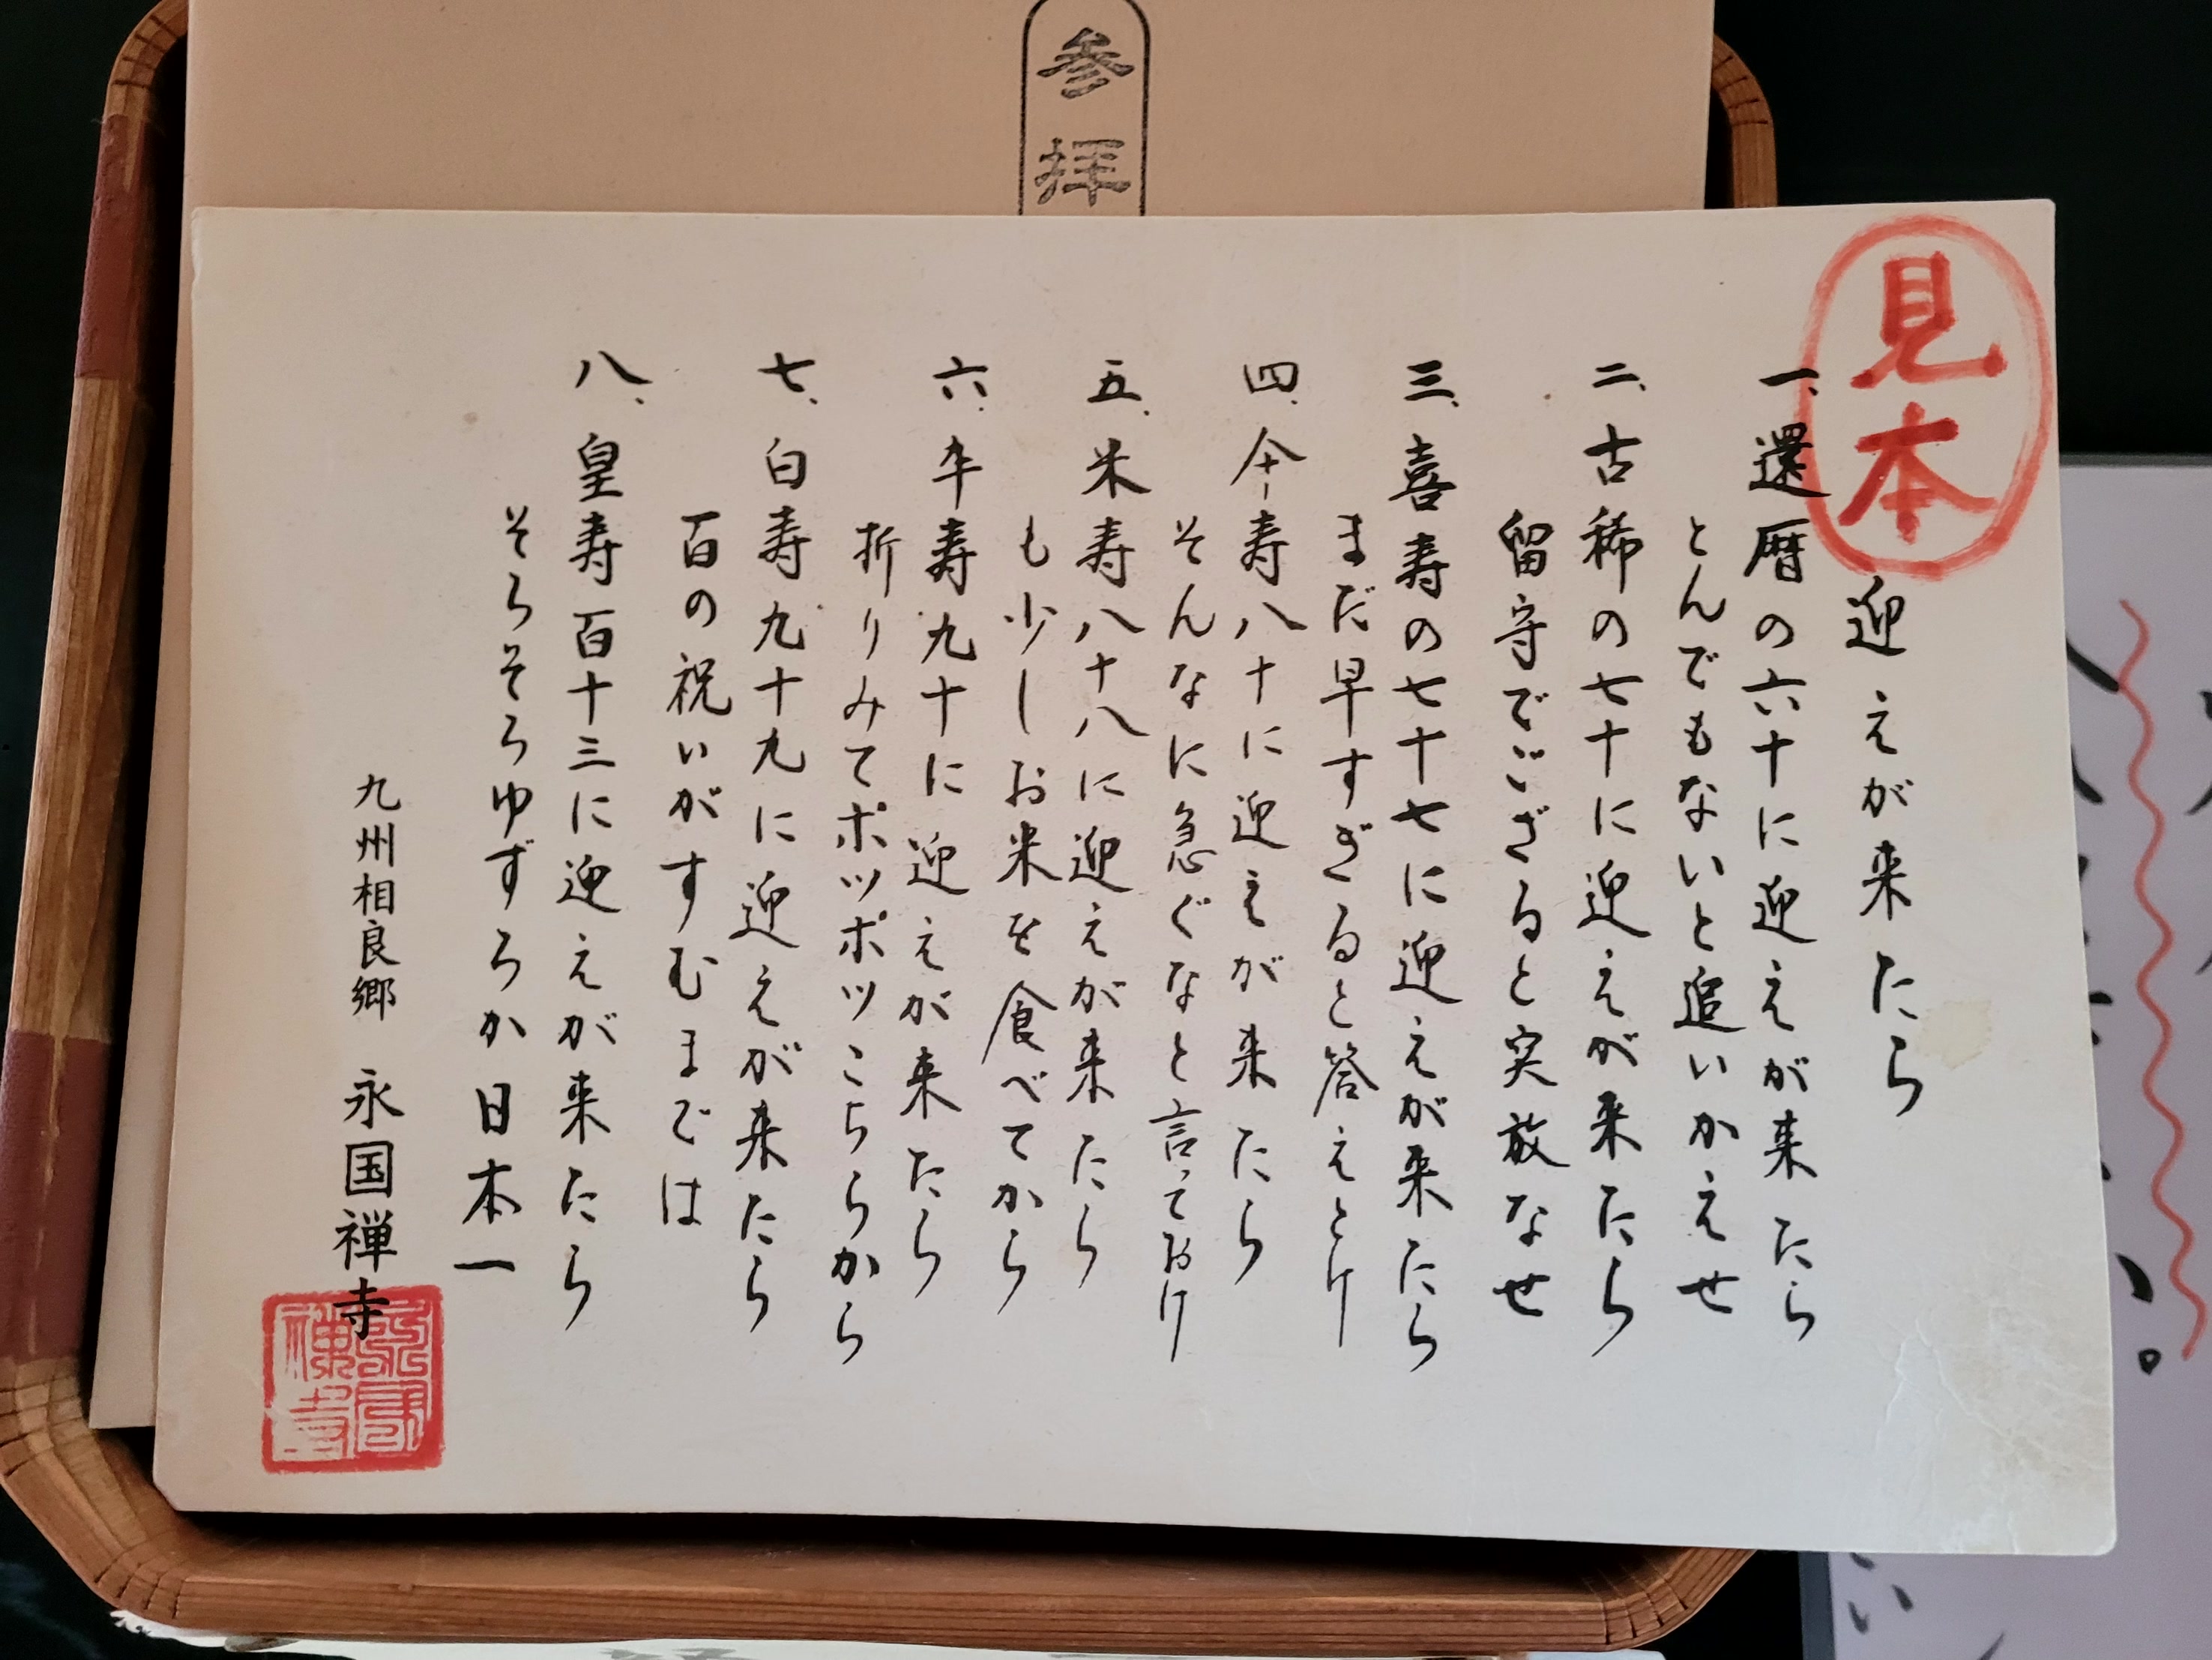 参拝
見本
迎えが来たら
一、還暦の六十に迎えが来たら
とんでもないと追いかえせ
二、古稀の七十に迎えが来たら
留守でござると突放なせ
三、喜寿の七十七に迎えが来たら
まだ早すぎると答えとけ
四、仐寿八十に迎えが来たら
そんなに急ぐなと言っておけ
五、米寿八十八に迎えが来たら
も少しお米を食べてから
六、卆寿九十に迎えが来たら
折りみてポツポツこちらから
七、白寿九十九に迎えが来たら
百の祝いがすむまでは
八、皇寿百十三に迎えが来たら
そろそろゆずろか日本一
九州相良郷 永国禅寺
永国禅寺